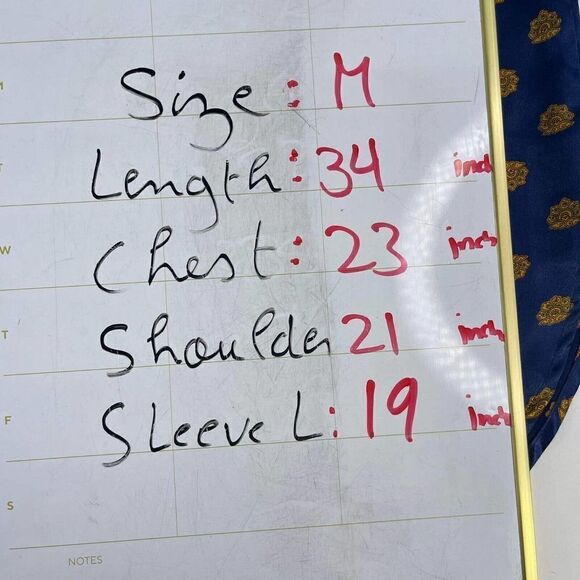 M
Size: M
T
Length: 34 inch
W
Chest: 23 inch
T
Shoulder 21 inch
F
Sleeve L: 19 inch
S
NOTES